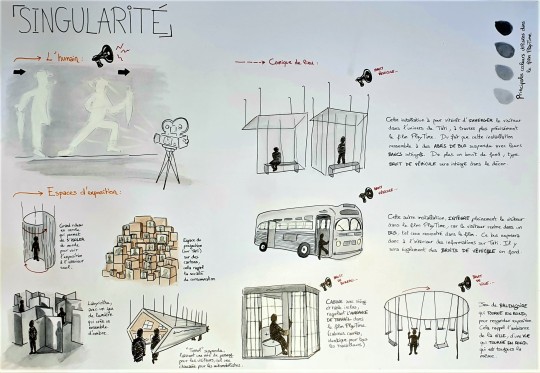 「SINGULARITÉ」
L'humain :
Comique de rue :
BRUIT VÉHICULE...
Principales couleurs utilisées dans
le film PlayTime.
Cette installation a pour intérêt d'IMMERGER le visiteur
dans l'univers de Tati, à travers plus précisément
le film PlayTime. Du fait que cette installation
ressemble à des ABRIS DE BUS suspendus avec leurs
BANCS intégrés. De plus un bruit de fond, type
BRUIT DE VÉHICULE sera intégré dans le décor.
Espaces d'exposition :
Grand rideau
en cercle
qui permet
de S'ISOLER
du monde
pour voir
l'exposition
à l'intérieur
Espace de
projection
(sur Tati)
sur des
cartons,
cela rappel
la société
de consommation
BRUIT VÉHICULE...
Cette autre installation, INTÈGRE pleinement le visiteur
dans le film PlayTime, car le visiteur rentre dans un
BUS. Il est
dans le film. Ce bus exposera
donc à l'intérieur des informations sur Tati. Il y
aura également des BRUITS DE VÉHICULE en fond
Labyrinthe,
avec un jeu
de lumière
qui crée un
ensemble
d'ombre
"Tunnel" suspendu,
faisant
pour les visiteurs,
BRUIT DE BUREAU...
CABINE avec
et table
rappelant l'AMBIANCE
DE TRAVAIL dans
le film PlayTime.
(cabines carrées,
identique pour tous
les travailleurs)
BRUIT VILLE...
Jeu de BALANÇOIRE
qui TOURNE EN ROND,
pour regarder exposition
Cela rappel l'ambiance
de la VILLE, d'une VIE
qui TOURNE EN ROND,
qui est toujours la
même.